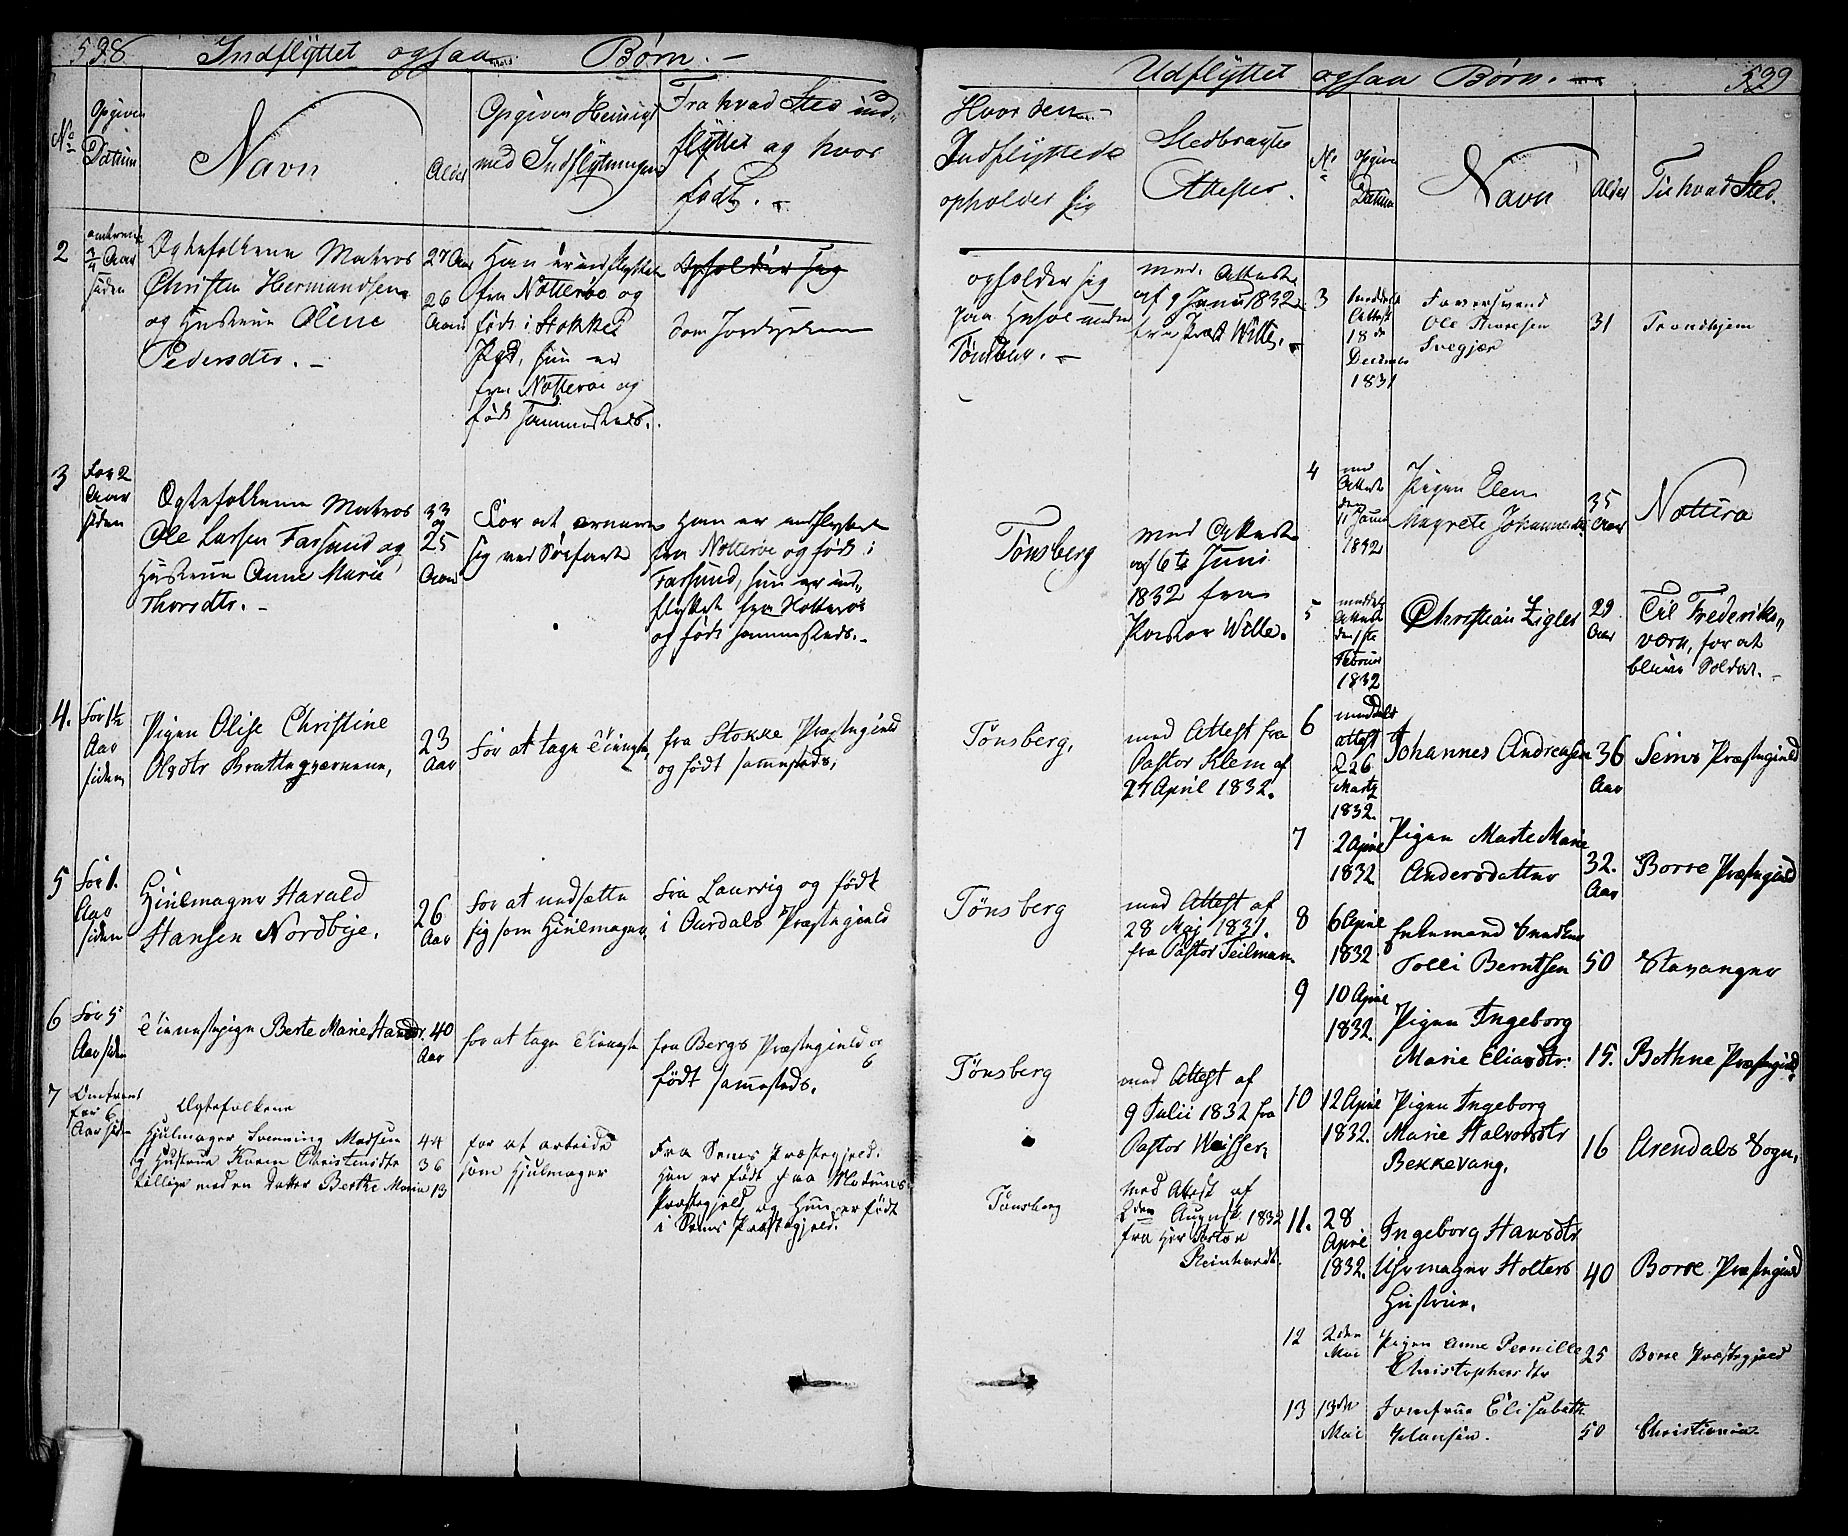 538
Indflyttet ogsaa Børn. -
No
Opgiven Datum
Navn
Alder
Opgiven Hensigt
med Indflytningen
Fra hvad Sted ind-
flyttet og hvor
født. -
Hvor den
Indflyttede
opholder sig
Medbragte
Attester.
2
Aar
siden
Ægtefolkene Matros
Christen Hermandsen
og Hustrue Olene
Pedersdtr. -
27 Aar
26
Aar
Han er indflyttet
fra Nøtterøe og
født i Stokke
Pgd, hun er
fra Nøtterøe og
født sammesteds.
Opholder sig
som
opholder sig
paa Husøe under
Tønsberg. -
med Attest
af 9 Juni 1832
fra Præst Wille. -
3
For 2
Aar
siden
Ægtefolkene Matros
Ole Larsen Farsund og
Hustrue Anne Marie
Thorsdtr. -
33
og
25
Aar
For at ernære
sig ved Søefart
Han er indflyttet
fra Nøtterøe og født i
Farsund, hun er ind-
flyttet fra Nøtterøe
og født sammesteds. -
Tønsberg
med Attest
af 6te Juni
1832 fra
Pastor Wille.
4.
For 1½
Aar
siden
Pigen Olise Christine
Olsdtr Brattegværnene,
23
Aar
For at tage Tieneste,
fra Stokke Præstegield
og født sammesteds,
Tønsberg,
med Attest fra
Pastor Klem af
27 April 1832.
5
For 1.
Aar
siden
Hiulmager Harald
Hansen Nordbye,
26
Aar
For at nedsætte
sig som Hiulmager,
fra Laurvig og født
i Aurdals Præstegield
Tønsberg
med Attest af
28 Maj 1831.
fra Pastor Teilmann
6
For 5
Aar siden
Tienestepige Berte Marie Hansdtr.
40
Aar
for at tage Tieneste
fra Bergs Præstegield og
født sammesteds.
Tønsberg
med Attest af
9 Julii 1832 fra
Pastor Wøisser,
7
Omtrent
for 6
Aar siden
Ægtefolkene
Hjulmager Svenning Madsen
og Hustrue Karen Christensdtr
tillige med en datter Berthe Marie
44
36
13
for at arbeide
som Hjulmager
Fra Sems Præstegjeld.
Han er født paa Modums
Præstegjeld, og Hun er født
i Sems Præstegjeld.
Tønsberg
Med Attest af
2den August 1832
fra Hør Pastor
Reinhardt.
539
Udflyttet ogsaa Børn. -
No
Opgiven
Datum
Navn
Alder
Til hvad Sted.
3
meddelt
Attest
18de
December
1831
Farversvend
Ole Thoresen
Svegjær
31
Trondhjem
4
med
Attest
den
11 Januar
1832
Pigen Elen
Magrete Johannesdtr
35
Aar
Nøtterø
5
meddelt
Attest
den 1ste
Februar
1832
Christian Zigler
29
Aar
Til Frederiks-
værn, for at
blive Soldat. -
6
meddelt
Attest
26
Martz
1832.
Johannes Andreasen
36
Aar
Sems Præstegield
7
2 April
1832
Pigen Marte Marie
Andersdatter
32.
Aar
Borre Præstegield
8
6 April
1832
Enkemand Snedker
Tolli Berntsen
50
Stavanger
9
10 April
1832.
Pigen Ingeborg
Marie Eliasdtr.
15.
Bothne Præstegield
10
12 April
1832.
Pigen Ingeborg
Marie Halvorsdtr
Bekkevang,
16
Arendals Sogn,
11.
28
April
1832.
Ingeborg Hansdtr
Uhrmager Holters
Hustrue.
40
Borre Præstegield
12
2den
Mai
Pigen Anne Pernille
Christophersdtr
25
Borre Præstegjeld
13
13de
Mai
Jomfrue Elisabeth
Hansen.
50
Christiania